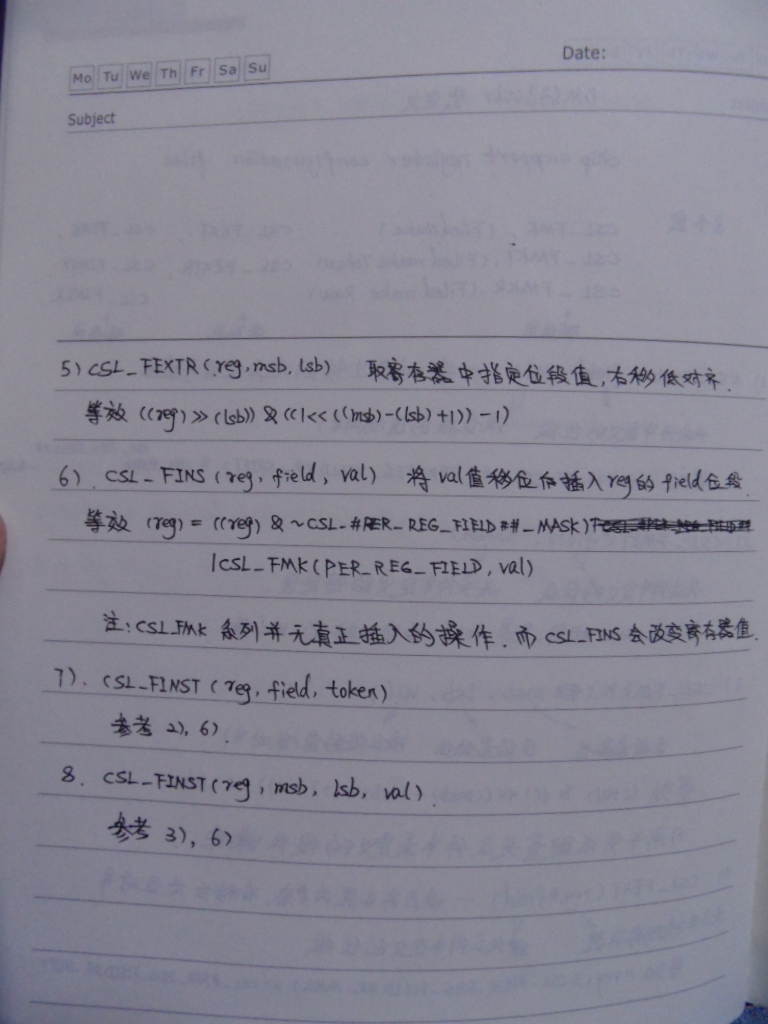 Date:
Mo Tu We Th Fr Sa Su
Subject
5) CSL_FEXTR(reg,msb,lsb) 取寄存器中指定位段值,右移低对齐.
等效 ((reg)>>(lsb)) & ((1<<((msb)-(lsb)+1))-1)
6). CSL_FINS(reg, field, val) 将val值移位后插入reg的field位段.
等效 (reg) = ((reg) & ~CSL_#PER_REG_FIELD##_MASK)
|CSL_FMK(PER_REG_FIELD, val)
注:CSL_FMK 系列并无真正插入的操作.而CSL_FINS会改变寄存器值.
7). CSL_FINST(reg, field, token)
参考 2), 6)
8. CSL_FINST(reg, msb, lsb, val).
参考 3), 6)